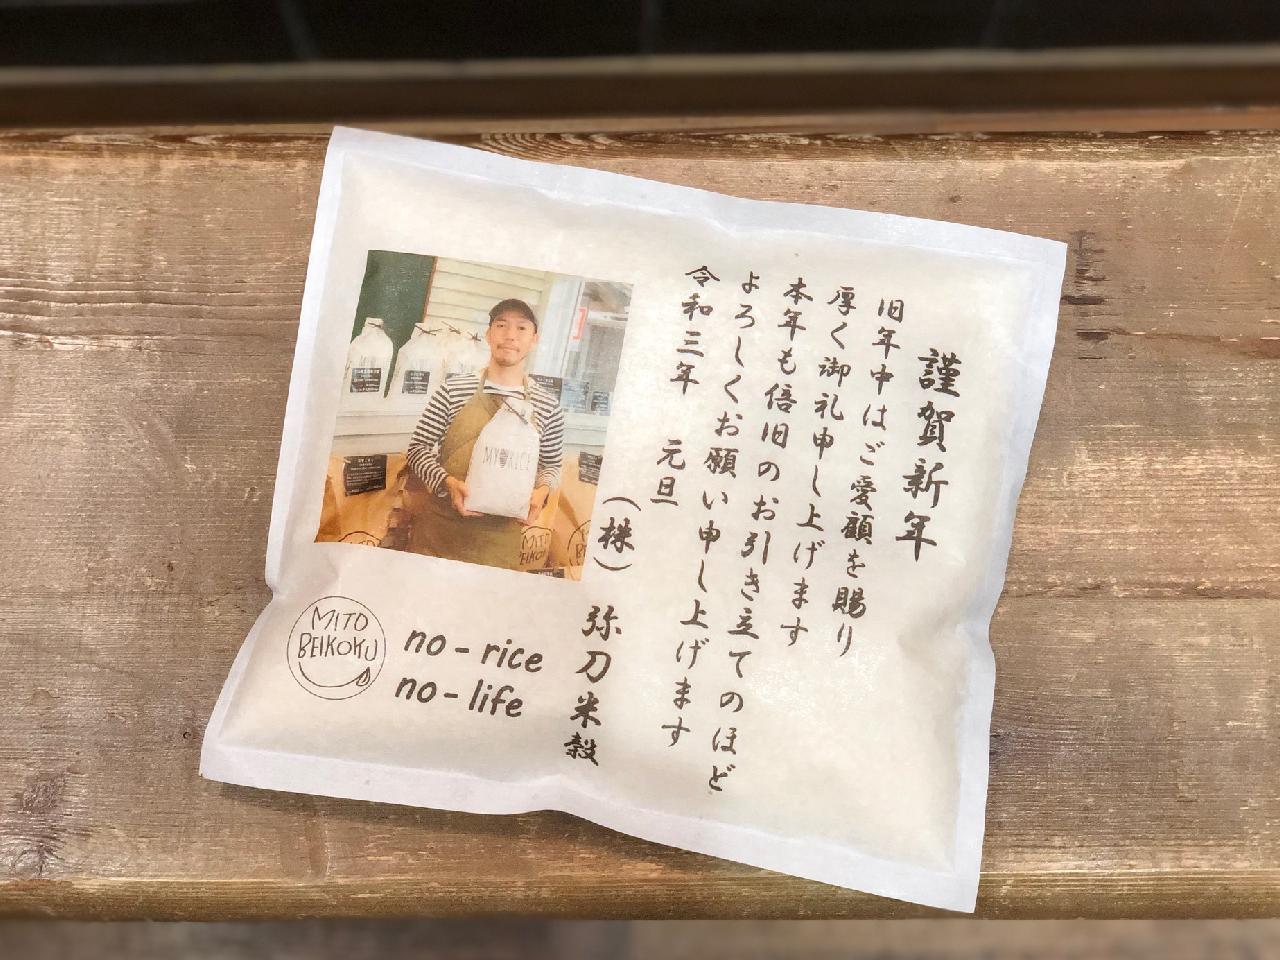 謹賀新年
旧年中はご愛顧を賜り
厚く御礼申し上げます
本年も倍旧のお引き立てのほど
よろしくお願い申し上げます
令和三年 元旦
(株) 弥刀米穀
MY RICE
MITO
BEIKOKU
MITO
BEIKOKU
no-rice
no-life